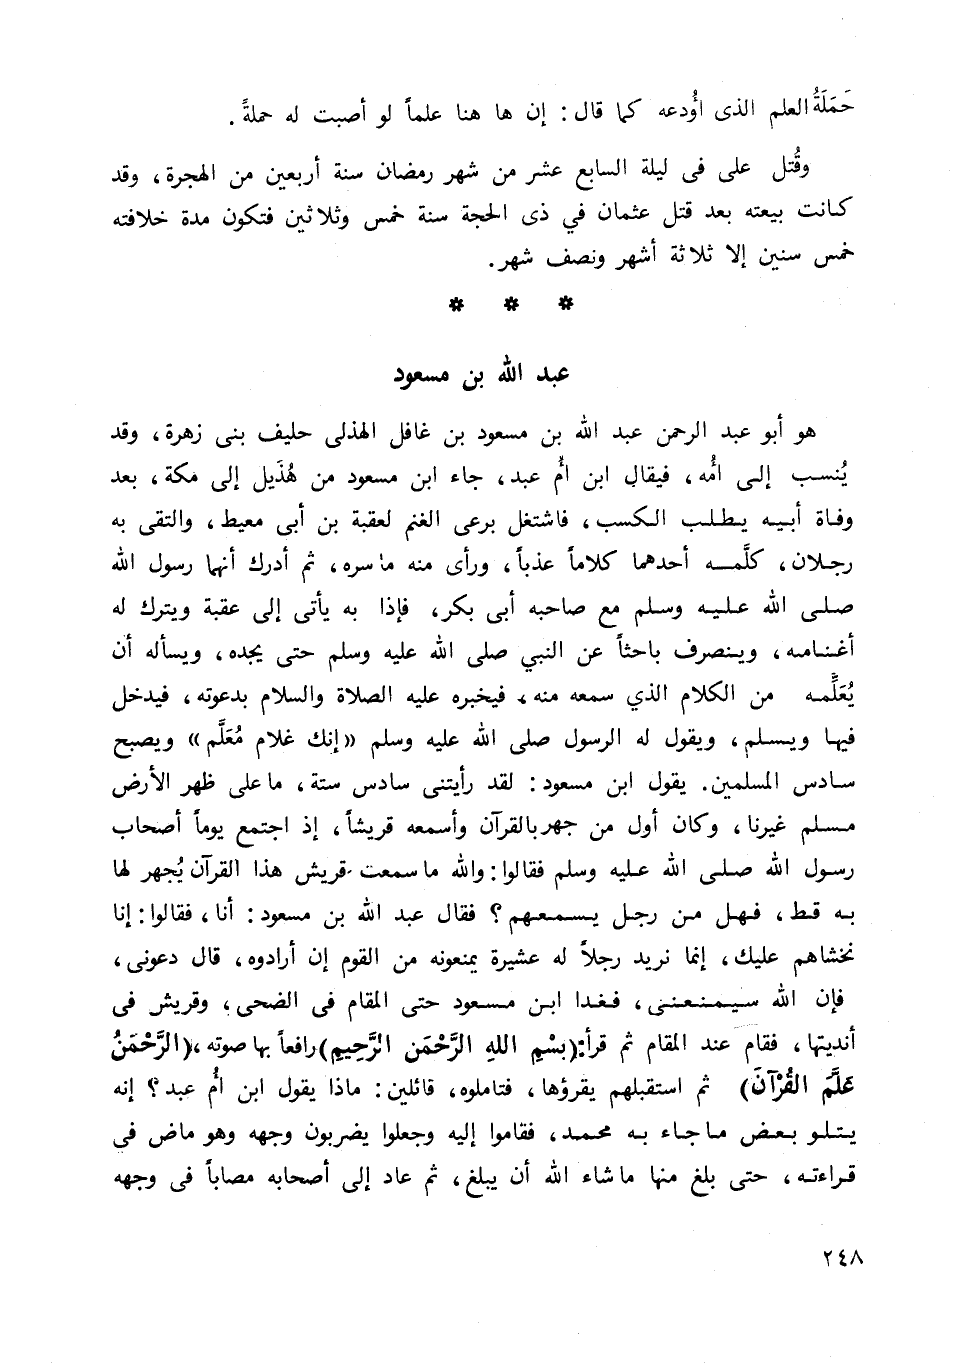 حَمَلَةُ العلم الذى أُودعه كما قال : إن ها هنا علماً لو أصبت له حملةً .
وقُتل على فى ليلة السابع عشر من شهر رمضان سنة أربعين من الهجرة ، وقد
كانت بيعته بعد قتل عثمان في ذى الحجة سنة خمس وثلاثين فتكون مدة خلافته
خمس سنين إلا ثلاثة أشهر ونصف شهر .
* * *
عبد الله بن مسعود
هو أبو عبد الرحمن عبد الله بن مسعود بن غافل الهذلى حليف بنى زهرة ، وقد
يُنسب إلى أمُه ، فيقال ابن أمُ عبد ، جاء ابن مسعود من هُذَيل إلى مكة ، بعد
وفاة أبيه يطلب الكسب ، فاشتغل برعى الغنم لعقبة بن أبى معيط ، والتقى به
رجلان ، كلَّمه أحدهما كلاماً عذباً ، ورأى منه ما سره ، ثم أدرك أنهما رسول الله
صلى الله عليه وسلم مع صاحبه أبى بكر ، فإذا به يأتى إلى عقبة ويترك له
أغنامه ، وينصرف باحثاً عن النبي صلى الله عليه وسلم حتى يجده ، ويسأله أن
يُعَلِّمه من الكلام الذي سمعه منه ، فيخبره عليه الصلاة والسلام بدعوته ، فيدخل
فيها ويسلم ، ويقول له الرسول صلى الله عليه وسلم «إنك غلام مُعَلَّم» ويصبح
سادس المسلمين . يقول ابن مسعود : لقد رأيتنى سادس ستة ، ما على ظهر الأرض
مسلم غيرنا ، وكان أول من جهر بالقرآن وأسمعه قريشاً ، إذ اجتمع يوماً أصحاب
رسول الله صلى الله عليه وسلم فقالوا : والله ما سمعت قريش هذا القرآن يُجهر لها
به قط ، فهل من رجل يسمعهم ؟ فقال عبد الله بن مسعود : أنا ، فقالوا : إنا
نخشاهم عليك ، إنما نريد رجلاً له عشيرة يمنعونه من القوم إن أرادوه ، قال دعونى ،
فإن الله سيمنعنى ، فغدا ابن مسعود حتى المقام فى الضحى ، وقريش فى
أنديتها ، فقام عند المقام ثم قرأ : (بِسْمِ اللهِ الرَّحْمَنِ الرَّحِيمِ) رافعاً بها صوته ، (الرَّحْمَنُ
عَلَّمَ القُرْآنَ) ثم استقبلهم يقرؤها ، فتاملوه ، قائلين : ماذا يقول ابن أمُ عبد ؟ إنه
يتلو بعض ما جاء به محمد ، فقاموا إليه وجعلوا يضربون وجهه وهو ماض فى
قراءته ، حتى بلغ منها ما شاء الله أن يبلغ ، ثم عاد إلى أصحابه مصاباً فى وجهه
٢٤٨